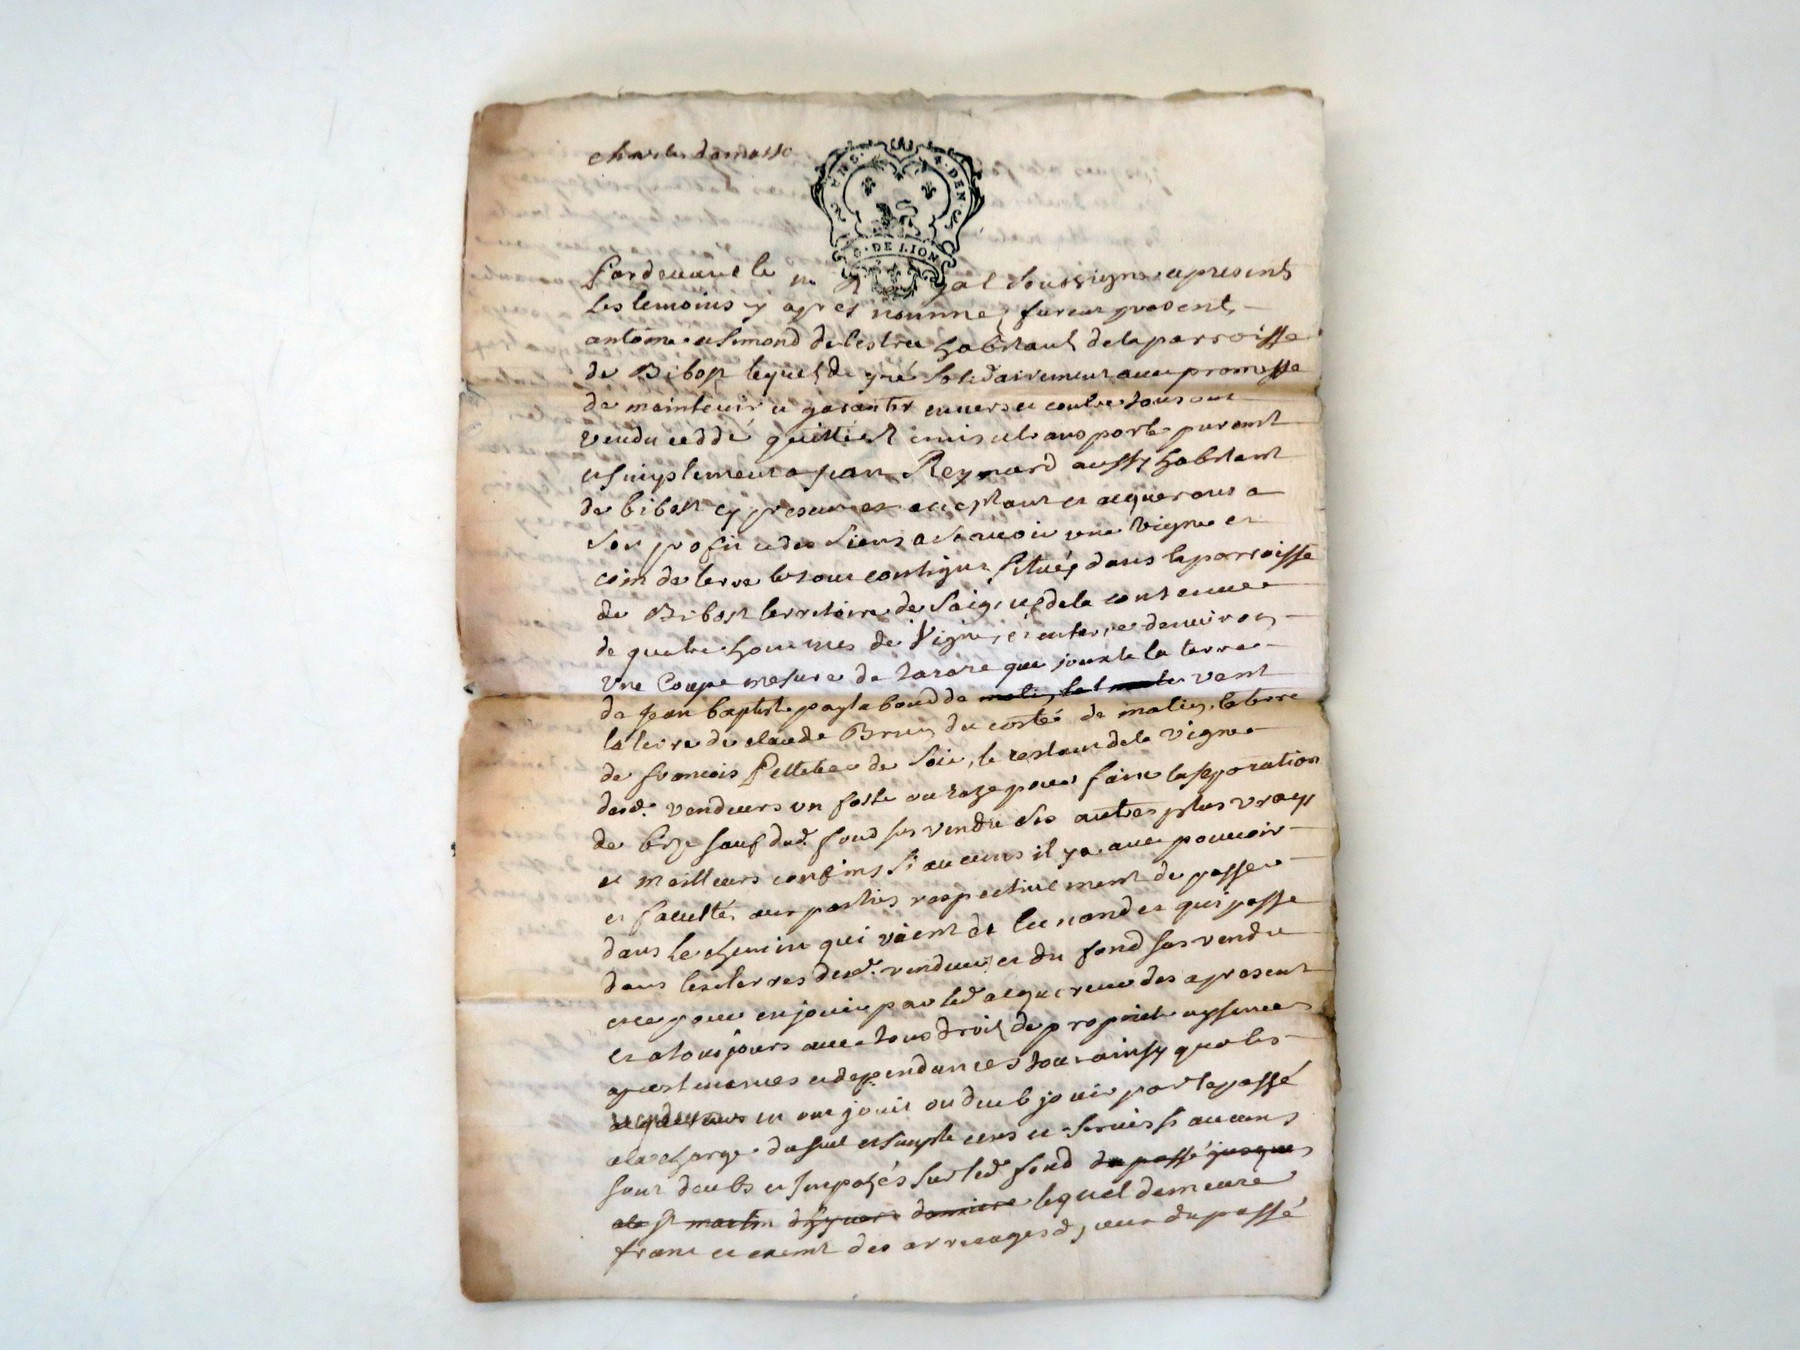 charles damasse
UNS. A. DEN.
G. DE LION
Pardevant le n r yal soussigne et presents
Les temoins cy apres nommes furent present
antoine et simond delestra habitants de la parroisse
de Bibost lequels de gré solidairement avec promesse
de maintenir et garantir envers et contre tous ont
vendu ceddé quitté et remis et transporté purement
et simplement a jean Reynard aussy habitant
de bibost cy present et acceptant et acquerant a
son profit et des siens a sçavoir une vigne et
coin de terre le tout contigus situés dans la parroisse
de Bibost territoire de de la contenue
de quatre hommes de vigne, et en terre denviron
une Coupe mesure de tarare que jouxte la terre
de jean baptiste de vent
la terre de claude Brun du costé de matin, la terre
de francois Pelletier de soir, le restant de la vigne
desd. vendeurs un fossé ou raze pour faire la separation
de bize sauf dud. fond sus vendu ses autres plus vrays
et meilleurs confins si aucuns il y a avec pouvoir
et faculté aux parties respectivement de passer
dans le chemin qui vient de et qui passe
dans les terres desd. vendeurs et du fond sus vendu
et ce pour en jouir par led acquereur des a present
et a toujours avec tous droits de proprieté
apartenances et dependances tout ainsy que les
vendeurs en ont jouit ou deub jouir par le passé
a la charge du seul et simple cens et servis si aucuns
sont deubs et imposés sur led fond du passé jusques
a la st martin d'hyvert derniere lequel demeure
franc et exemt des arrerages d'iceux du passé